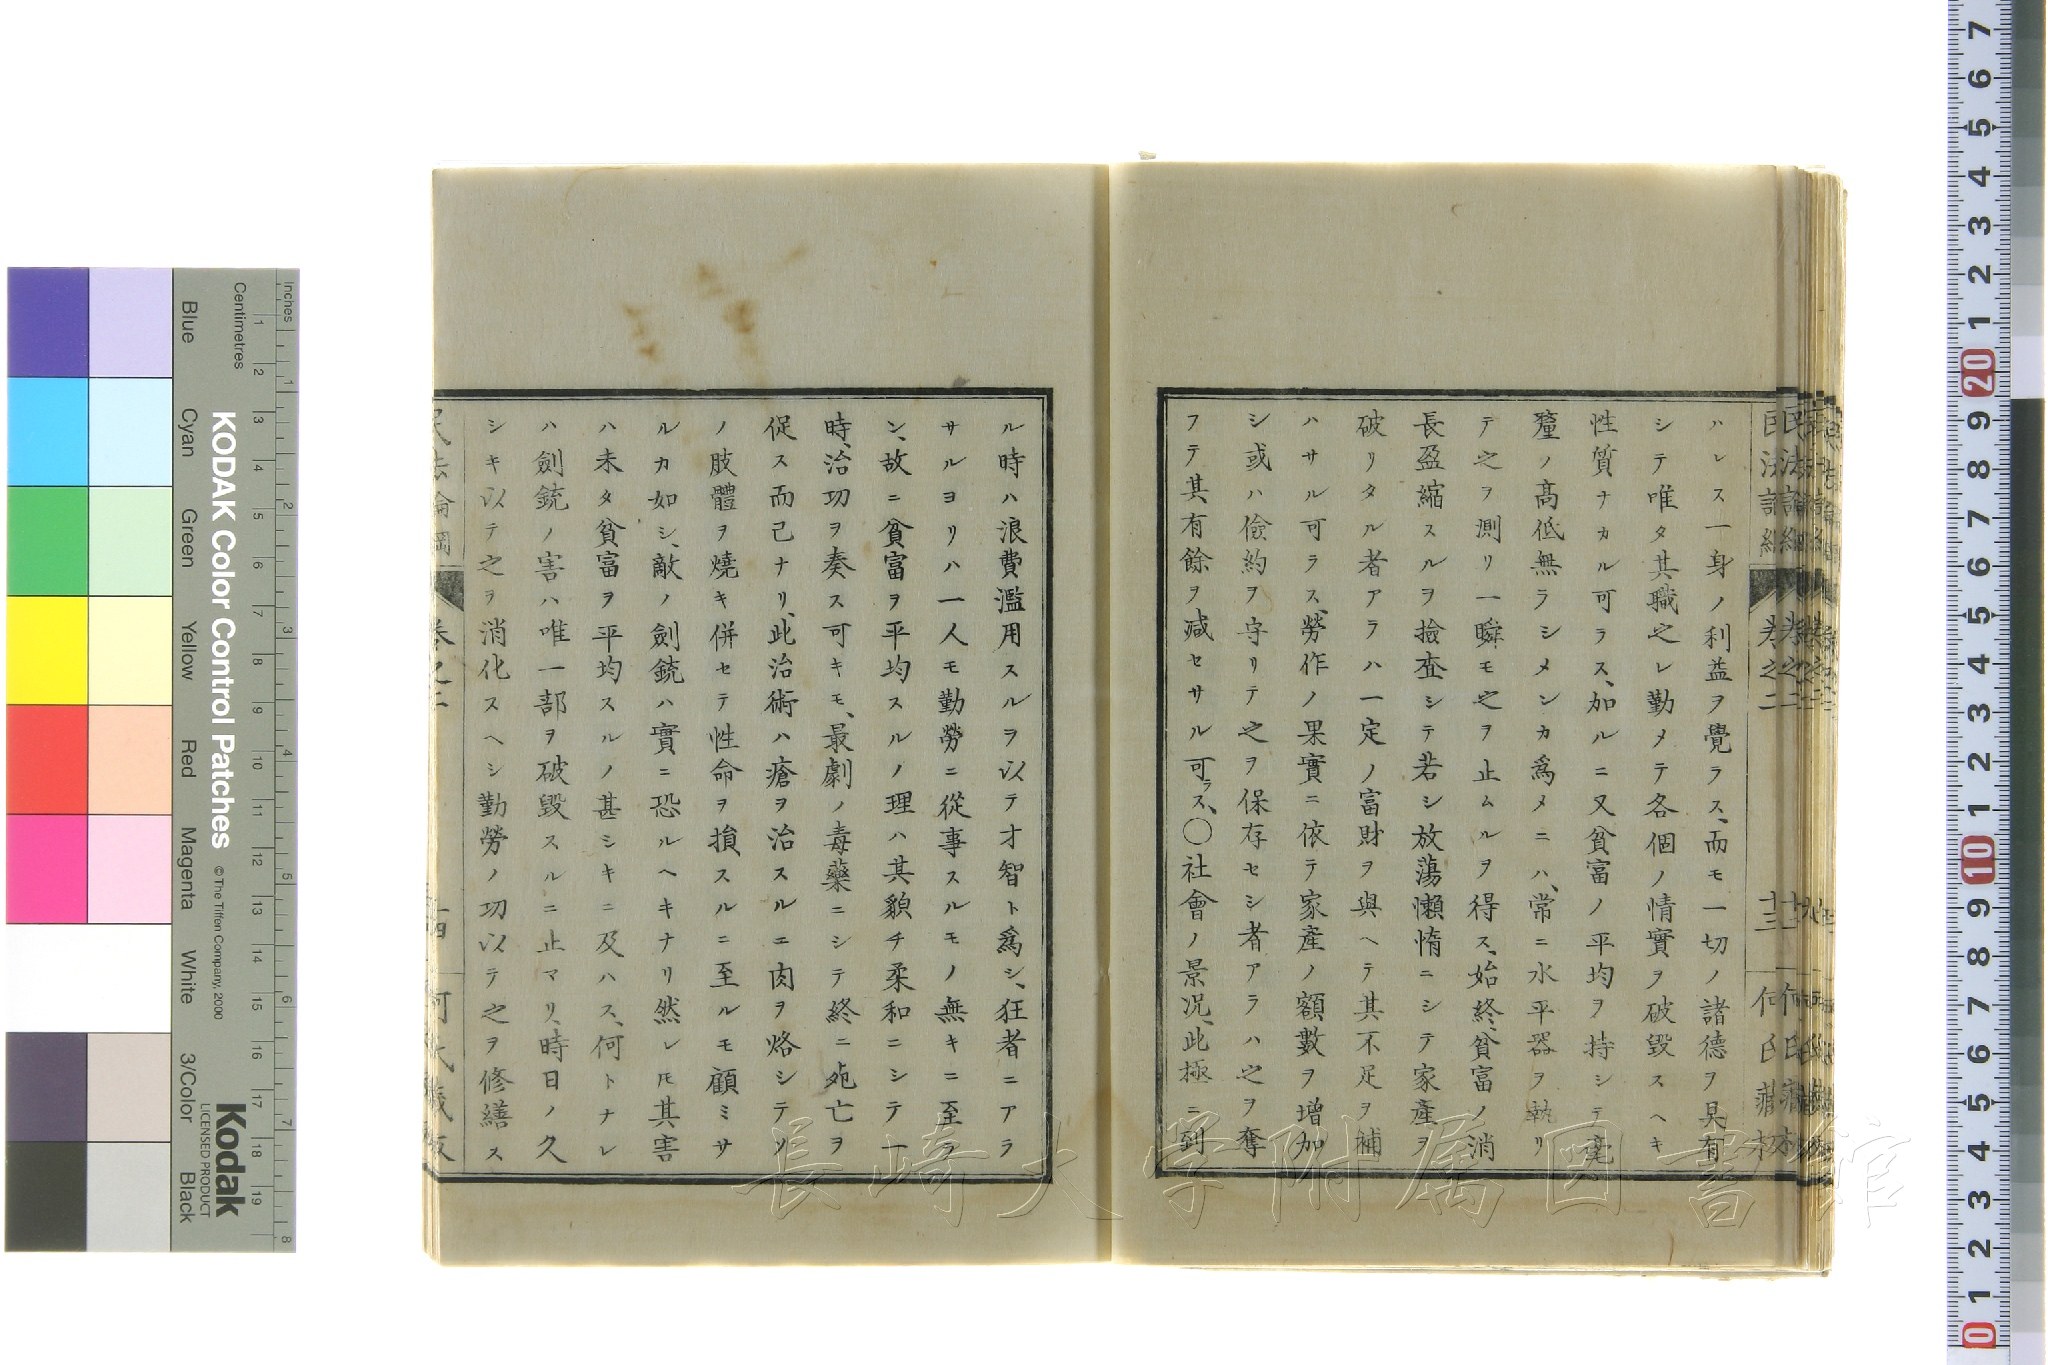 ハレス一身ノ利益ヲ覺ラス、而モ一切ノ諸德ヲ具有
シテ唯タ其職之レ勤メテ各個ノ情實ヲ破毀スヘキ
性質ナカル可ラス、加ルニ又貧富ノ平均ヲ持シテ毫
釐ノ高低無ラシメンカ爲メニハ、常ニ水平器ヲ執リ
テ之ヲ測リ一瞬モ之ヲ止ムルヲ得ス、始終、貧富ノ消
長盈縮スルヲ撿査シテ若シ放蕩懶惰ニシテ家產ヲ
破リタル者アラハ一定ノ富財ヲ與ヘテ其不足ヲ補
ハサル可ラス、勞作ノ果實ニ依テ家產ノ額數ヲ增加
シ或ハ儉約ヲ守リテ之ヲ保存セシ者アラハ之ヲ奪
フテ其有餘ヲ減セサル可ラス、〇社會ノ景況、此極ニ到
ル時ハ浪費濫用スルヲ以テ才智ト爲シ、狂者ニアラ
サルヨリハ一人モ勤勞ニ從事スルモノ無キニ至ラ
ン、故ニ貧富ヲ平均スルノ理ハ其貌チ柔和ニシテ一
時、治功ヲ奏ス可キモ、最劇ノ毒藥ニシテ終ニ死亡ヲ
促ス而已ナリ、此治術ハ瘡ヲ治スルニ肉ヲ烙シテソ
ノ肢體ヲ燒キ併セテ性命ヲ損スルニ至ルモ顧ミサ
ルカ如シ、敵ノ劍銃ハ實ニ恐ルヘキナリ然レ𪜈其害
ハ未タ貧富ヲ平均スルノ甚シキニ及ハス、何トナレ
ハ劍銃ノ害ハ唯一部ヲ破毀スルニ止マリ、時日ノ久
シキ以テ之ヲ消化スヘシ勤勞ノ功以テ之ヲ修繕ス
民法論綱 卷之二 十三 何氏藏板
長崎大学附属図書館
KODAK Color Control Patches
© The Tiffen Company, 2000
Kodak
LICENSED PRODUCT
Inches
Centimetres
Blue Cyan Green Yellow Red Magenta White 3/Color Black